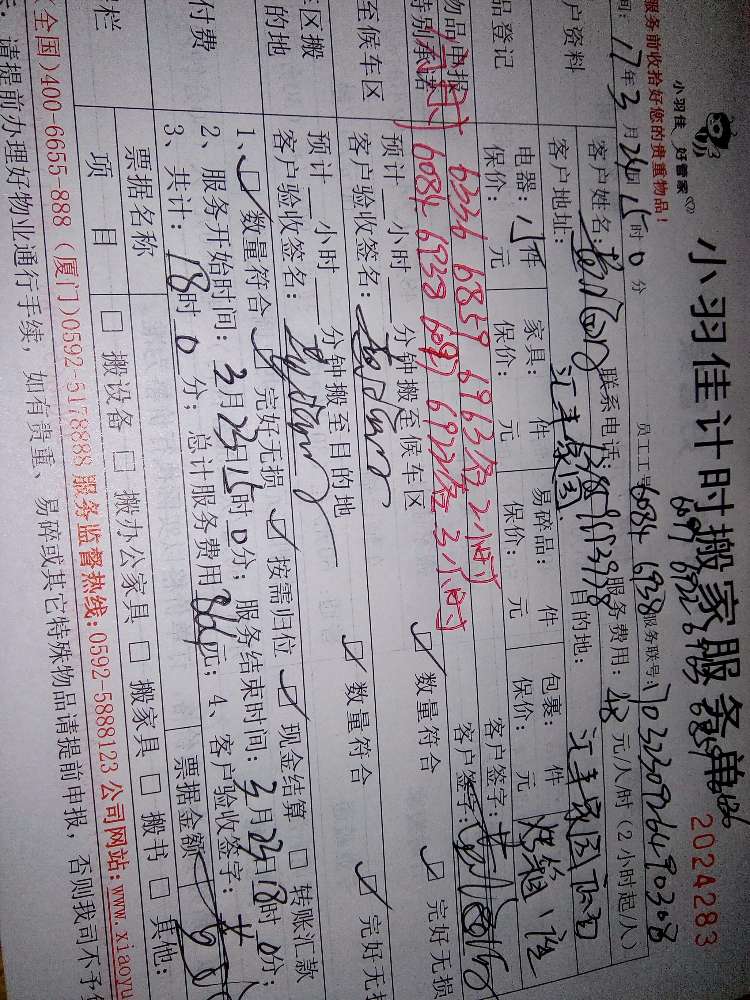 小羽佳 好管家
小羽佳计时搬家服务典
2024283
服务前收拾好您的贵重物品!
间: 17年3月23日15时0分
员工工号: 6084 6938
服务联号:
户资料
客户姓名:
联系电话:
服务费用: 48 元/人/时(2小时起/人)
客户地址: 汇丰家园
目的地: 汇丰家园
品登记
电器: 件
家具: 件
易碎品: 件
包裹: 件
保价: 元
保价: 元
保价: 元
保价: 元
物品申报
特别承诺
6859 6963各2小时
6084 6938 6097 6922各3小时
客户签字:
客户签字:
至候车区
预计 小时 分钟搬至候车区
数量符合
完好无损
客户验收签名:
区搬
的地
预计 小时 分钟搬至目的地
数量符合
完好无损
客户验收签名:
付费
1、数量符合 完好无损 按需归位 现金结算 转账汇款
2、服务开始时间: 3月23日15时0分; 服务结束时间: 3月23日18时0分;
3、共计: 18时0分; 总计服务费用 元; 4、客户验收签字:
栏
票据名称
票据金额
项目
搬设备 搬办公家具 搬家具 搬书 其他:
(全国)400-6655-888 (厦门)0592-5178888 服务监督热线:0592-5888123 公司网站:www.xiaoyu
: 请提前办理好物业通行手续, 如有贵重、易碎或其它特殊物品请提前申报, 否则我司不予